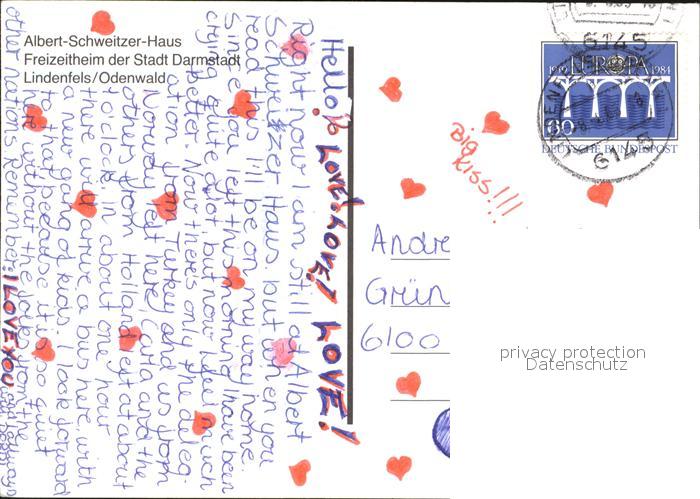 Albert-Schweitzer-Haus
Freizeitheim der Stadt Darmstadt
Lindenfels/Odenwald
Hello LOVE! LOVE! LOVE! LOVE!
Right now I am still at Albert
Schweitzer Haus. but when you
read this I'll be on my way home.
Since you left this morning I have been
crying quite alot but now I feel much
better. Now there's only the deleg-
ation from Turkey and us from
Norway left here. Carla and the
others from Holland left at about
4 o'clock. In about one hour
there will arrive a bus here with
a new gang of kids. I look forward
to that because it is so quiet
here without the joke from the
other nations. Remember: I LOVE YOU and always
Big
KISS!!!
Andre
Grün
6100
EUROPA
1959 1984
80
DEUTSCHE BUNDESPOST
6145
6145
privacy protection
Datenschutz